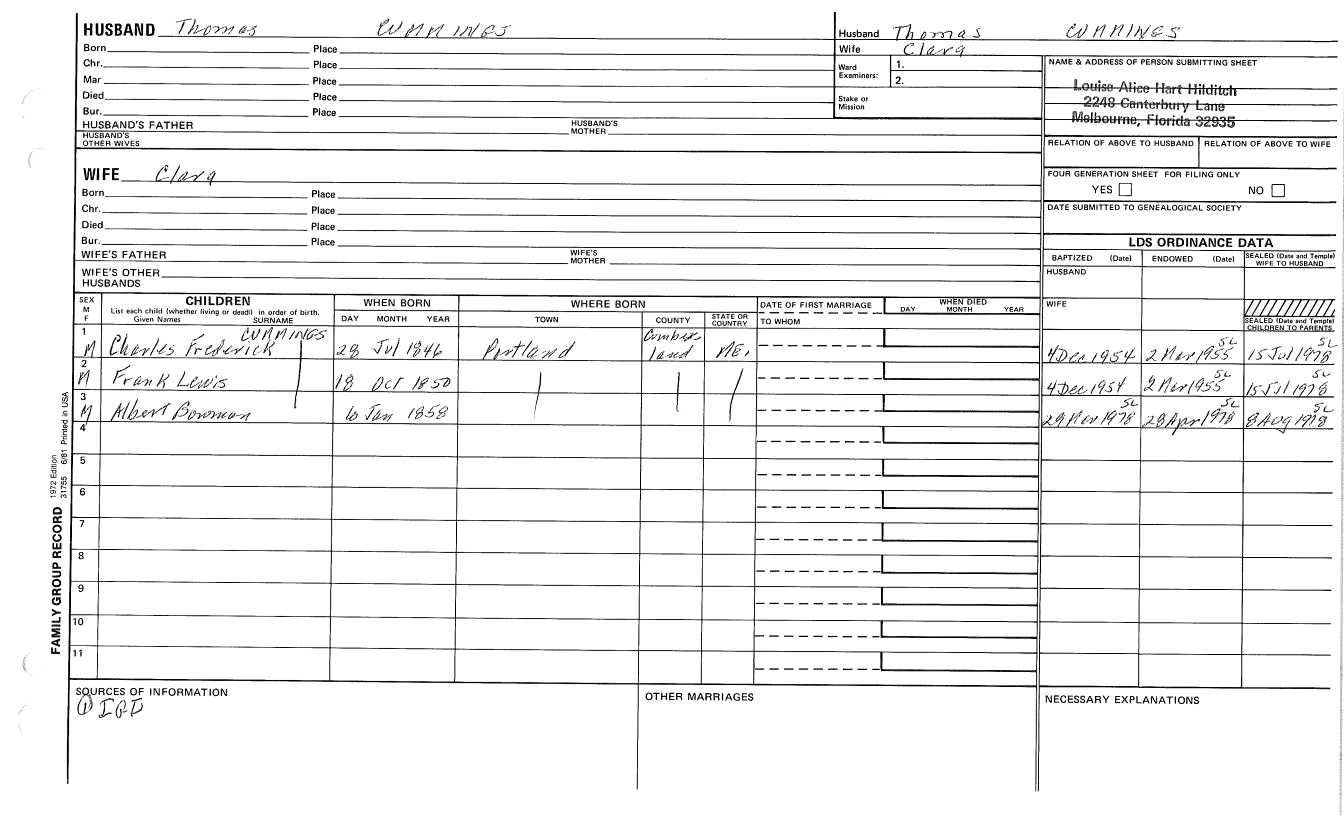 HUSBAND Thomas CUMMINGS
Born Place
Chr. Place
Mar Place
Died Place
Bur. Place
HUSBAND'S FATHER HUSBAND'S MOTHER
HUSBAND'S OTHER WIVES
WIFE Clara
Born Place
Chr. Place
Died Place
Bur. Place
WIFE'S FATHER WIFE'S MOTHER
WIFE'S OTHER HUSBANDS
Husband Thomas CUMMINGS
Wife Clara
Ward Examiners: 1.
2.
Stake or Mission
NAME & ADDRESS OF PERSON SUBMITTING SHEET
Louise Alice Hart Hilditch
2248 Canterbury Lane
Melbourne, Florida 32935
RELATION OF ABOVE TO HUSBAND RELATION OF ABOVE TO WIFE
FOUR GENERATION SHEET FOR FILING ONLY
YES NO
DATE SUBMITTED TO GENEALOGICAL SOCIETY
LDS ORDINANCE DATA
BAPTIZED (Date) ENDOWED (Date) SEALED (Date and Temple) WIFE TO HUSBAND
HUSBAND
WIFE
SEALED (Date and Temple) CHILDREN TO PARENTS
SEX M F
CHILDREN
List each child (whether living or dead) in order of birth.
Given Names SURNAME
WHEN BORN
DAY MONTH YEAR
WHERE BORN
TOWN COUNTY STATE OR COUNTRY
DATE OF FIRST MARRIAGE
TO WHOM
WHEN DIED
DAY MONTH YEAR
1 M Charles Frederick CUMMINGS 28 Jul 1846 Portland Cumberland ME. 4 Dec 1954 2 Mar 1955 SL 15 Jul 1978 SL
2 M Frank Lewis 18 Oct 1850 4 Dec 1954 2 Mar 1955 SL 15 Jul 1978 SL
3 M Albert Bowman 6 Jan 1858 29 Mar 1978 SL 28 Apr 1978 SL 8 Aug 1978 SL
4
5
6
7
8
9
10
11
SOURCES OF INFORMATION
① IGI
OTHER MARRIAGES
NECESSARY EXPLANATIONS
FAMILY GROUP RECORD
1972 Edition
31755 6/81 Printed in USA